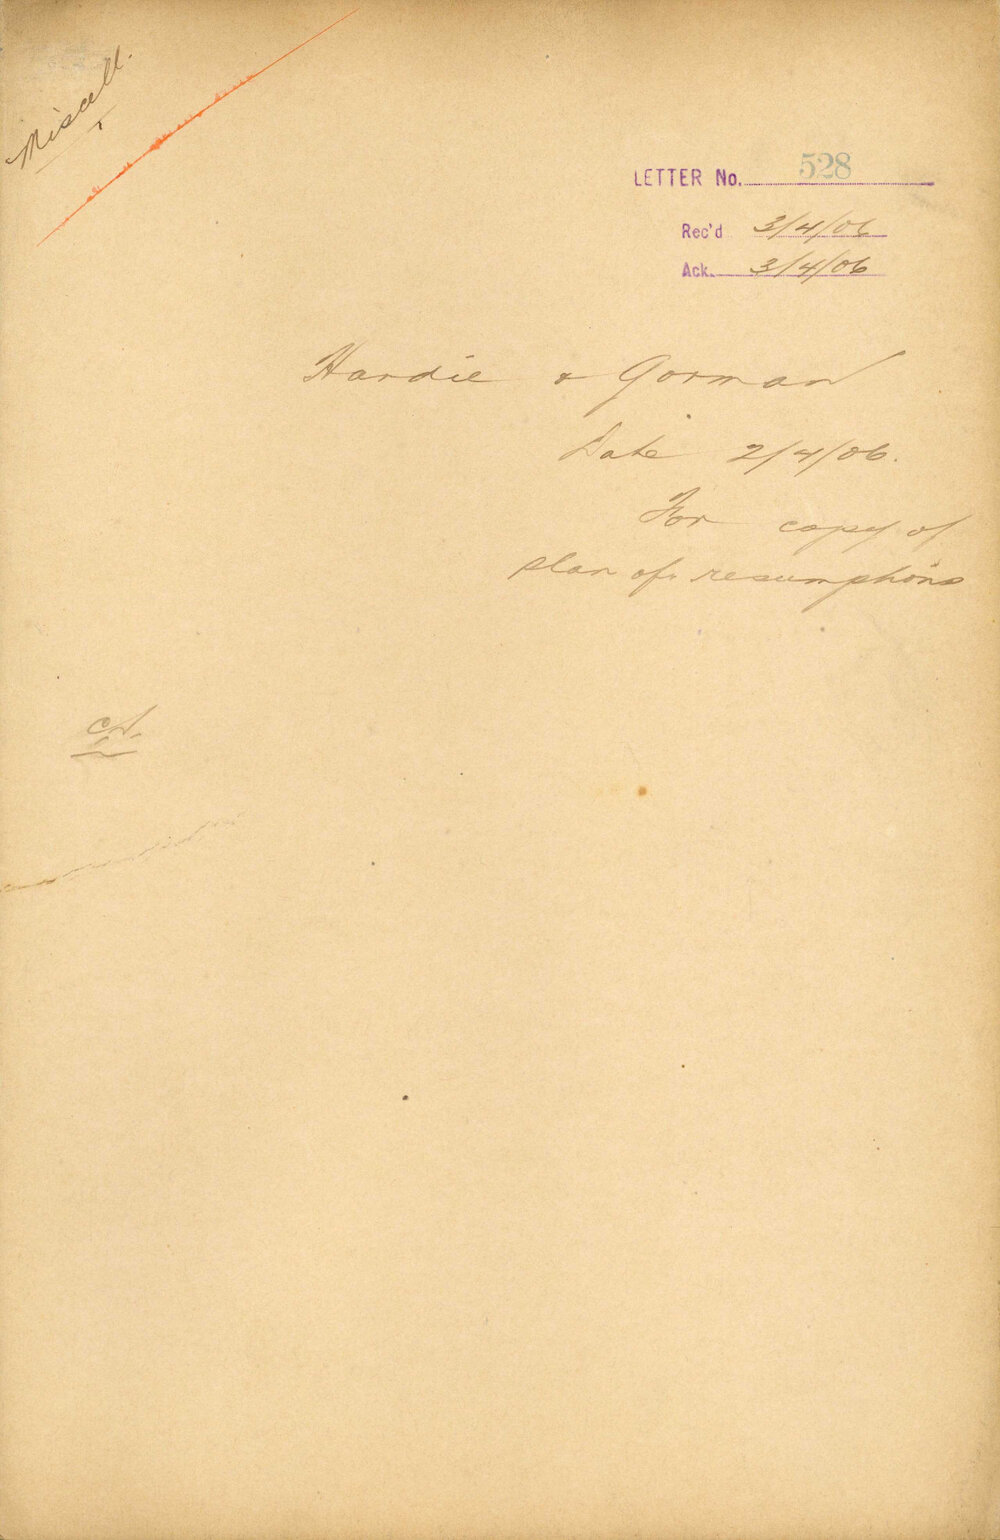 Miscell.
LETTER No. 528
Rec'd 3/4/06
Ack. 3/4/06
Hardie & Gorman
Date 2/4/06.
For copy of
plan of resumptions